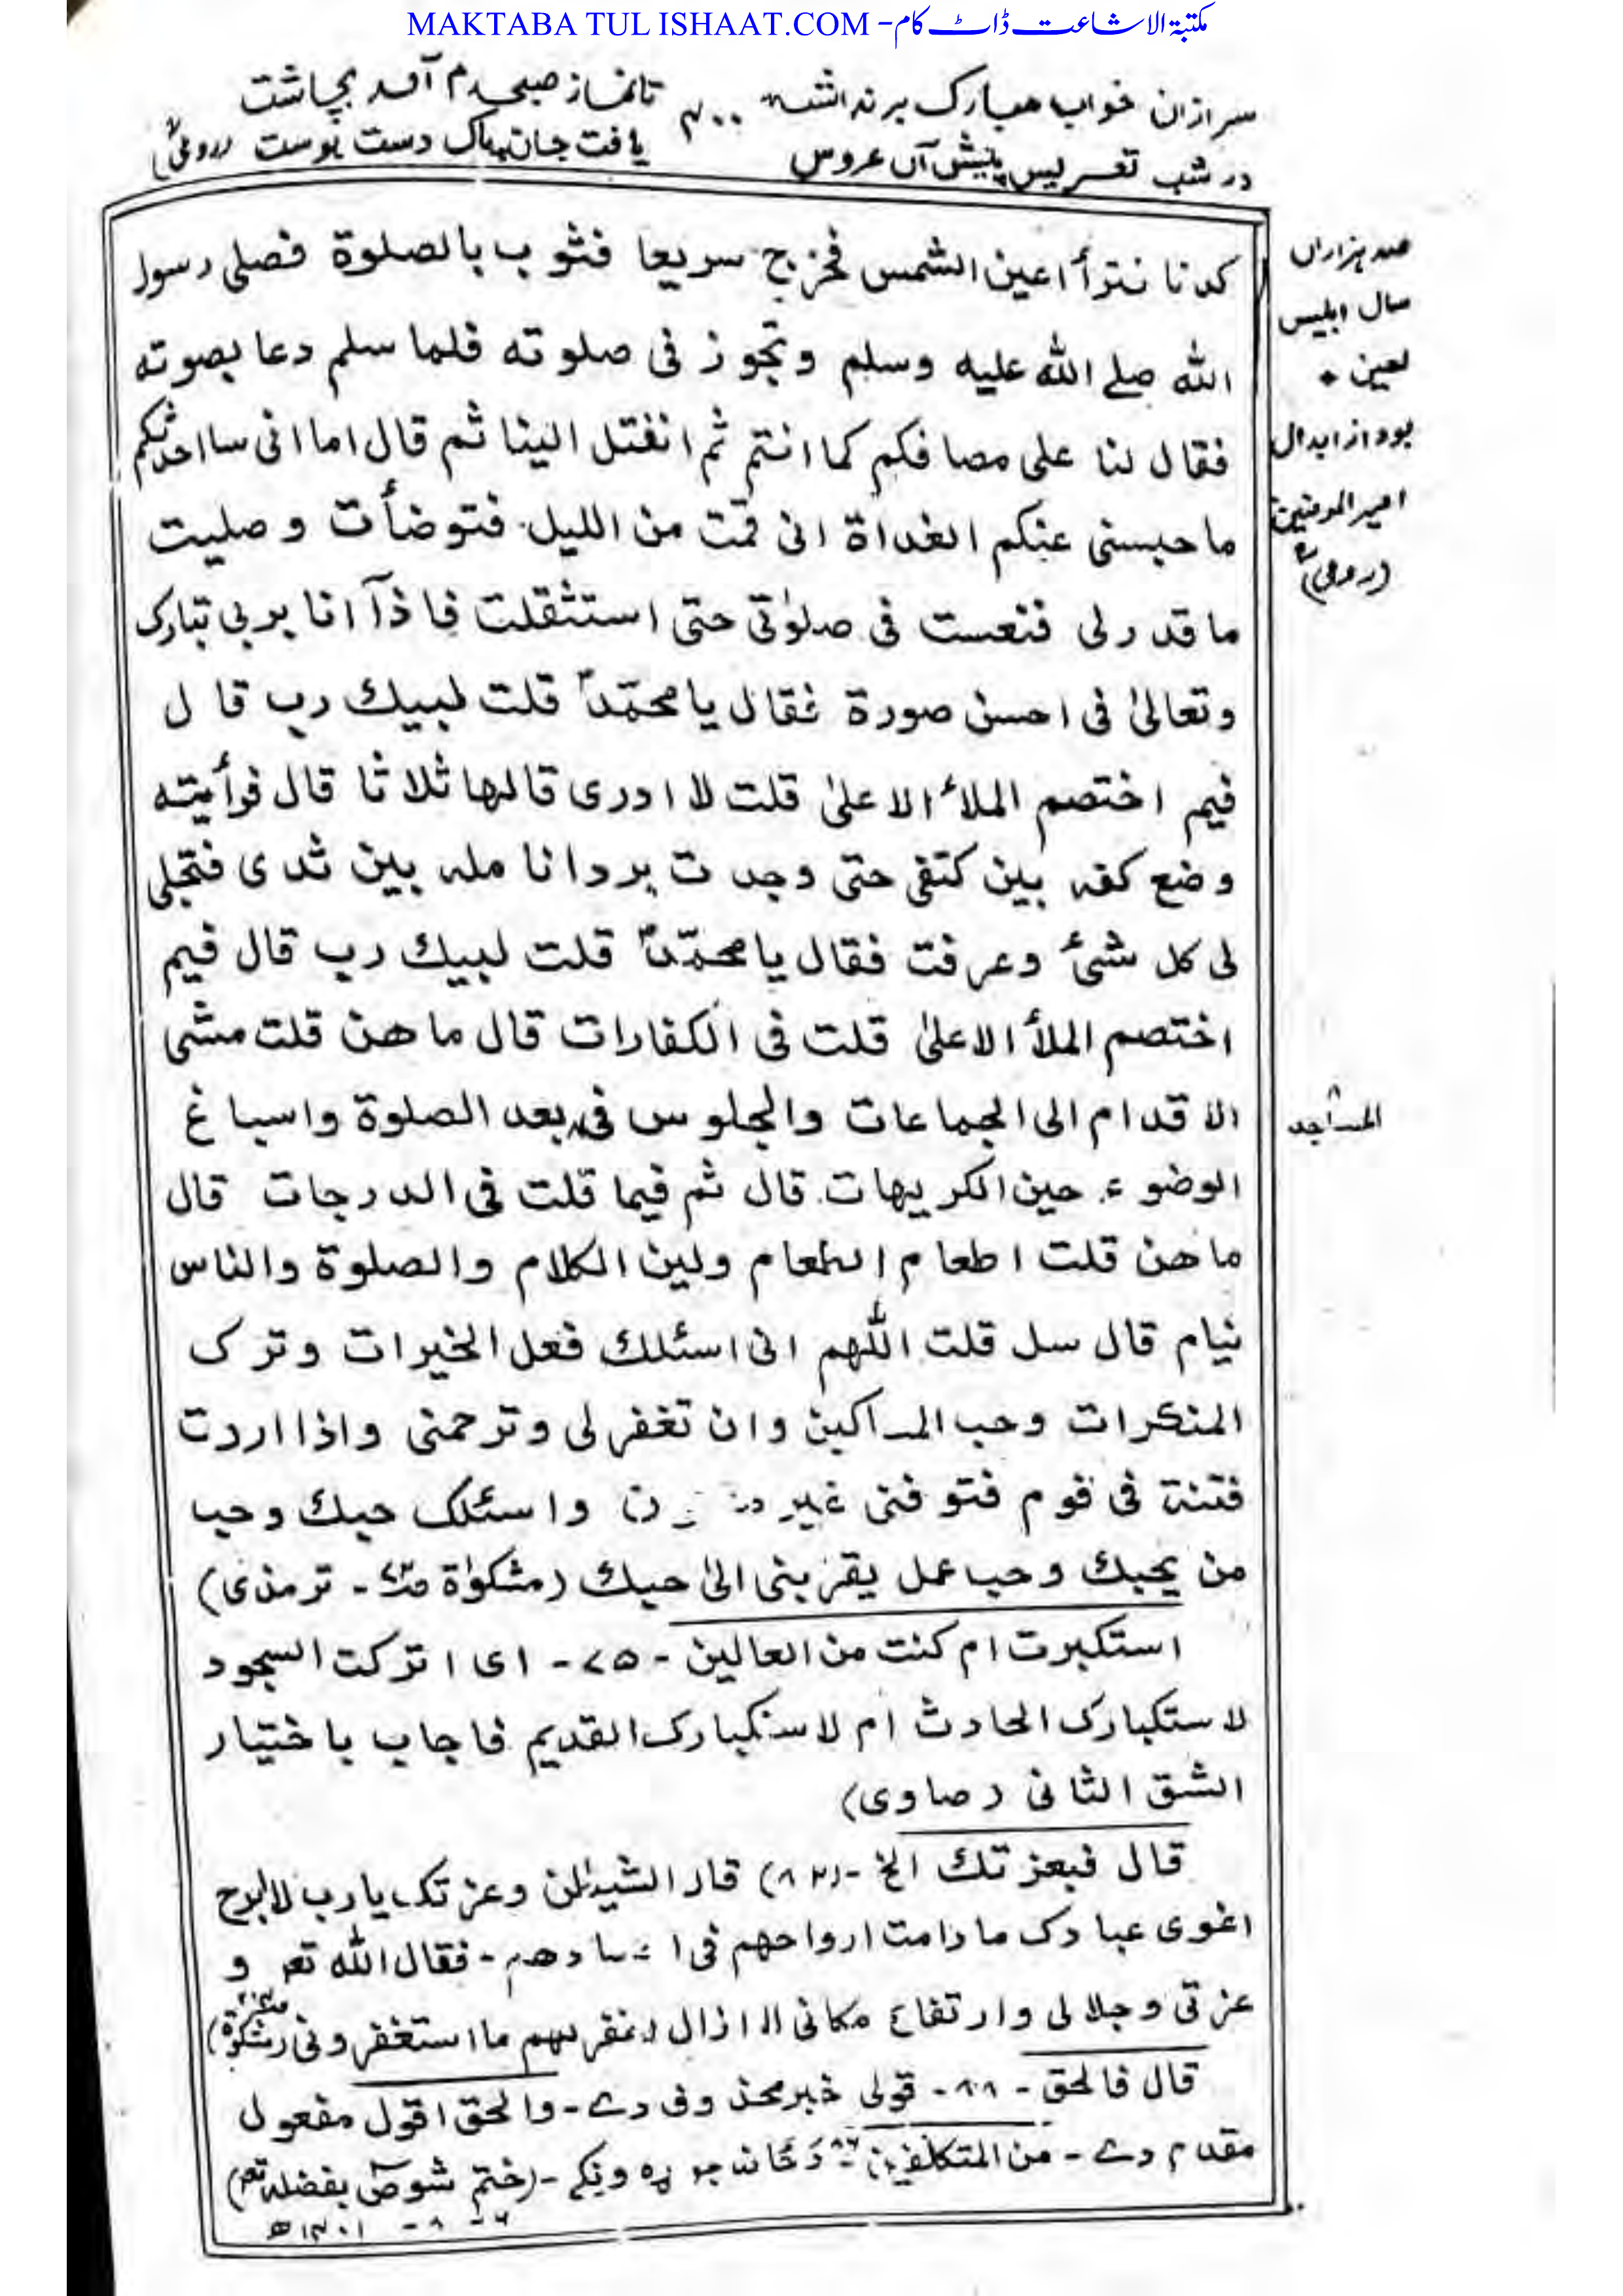 MAKTABA TUL ISHAAT.COM - مکتبۃ الاشاعت ڈاٹ کام
سر ازان خواب مبارک برنداشت تا نماز صبحدم آمد بچاشت
در شب تعریس پیش آں عروس یافت جان پاک دست بوست (رومیؒ)
صد ہزاراں
سال ابلیس
لعین
بود از ابدال
امیر المومنین
(رومیؒ)
کدنا نترأا عین الشمس فخرج سریعا فثوب بالصلوة فصلی رسول
الله صلے الله علیه وسلم وتجوز فی صلوته فلما سلم دعا بصوته
فقال لنا علی مصافکم کما انتم ثم انفتل الینا ثم قال اما انی ساحدثکم
ما حبسنی عنکم الغداة انی قمت من اللیل فتوضأت وصلیت
ما قدر لی فنعست فی صلوٰتی حتی استثقلت فاذآ انا بربی تبارک
وتعالیٰ فی احسن صورة فقال یا محمّدؐ قلت لبیك رب قال
فیم اختصم الملأ الاعلیٰ قلت لا ادری قالها ثلاثا قال فرأیته
وضع کفه بین کتفی حتی وجدت برد انامله بین ثدی فتجلی
لی کل شئ وعرفت فقال یا محمّدؐ قلت لبیك رب قال فیم
اختصم الملأ الاعلیٰ قلت فی الکفارات قال ما هن قلت مشی
الاقدام الی الجماعات والجلوس فی بعد الصلوة واسباغ
المساجد
الوضوء حین الکریهات قال ثم فیما قلت فی الدرجات قال
ما هن قلت اطعام الطعام ولین الکلام والصلوة والناس
نیام قال سل قلت اللهم انی اسئلك فعل الخیرات وترک
المنکرات وحب المساکین وان تغفر لی وترحمنی واذا اردت
فتنة فی قوم فتوفنی غیر واسئلک حبك وحب
من یحبك وحب عمل یقربنی الیٰ حبك (مشکوٰة - ترمذی)
استکبرت ام کنت من العالین - ۷۵ - ای اترکت السجود
لاستکبارک الحادث ام لاستکبارک القدیم فاجاب باختیار
الشق الثانی (صاوی)
قال فبعزتك الخ - (۸۲) قال الشیطٰن وعزتک یا رب لا ابرح
اغوی عبادک ما دامت ارواحهم فی اجسادهم - فقال الله تعہ و
عزتی وجلالی وارتفاع مکانی لا ازال اغفر لهم ما استغفرونی (مشکوٰة)
قال فالحق - ۸۸ - قولی خبر محذوف دے - والحق اقول مفعول
مقدم دے - من المتکلفین ۸۶ (ختم شو صٓ بفضله تعہ)
۶ - ۸ - ۱۴۰۱ھ